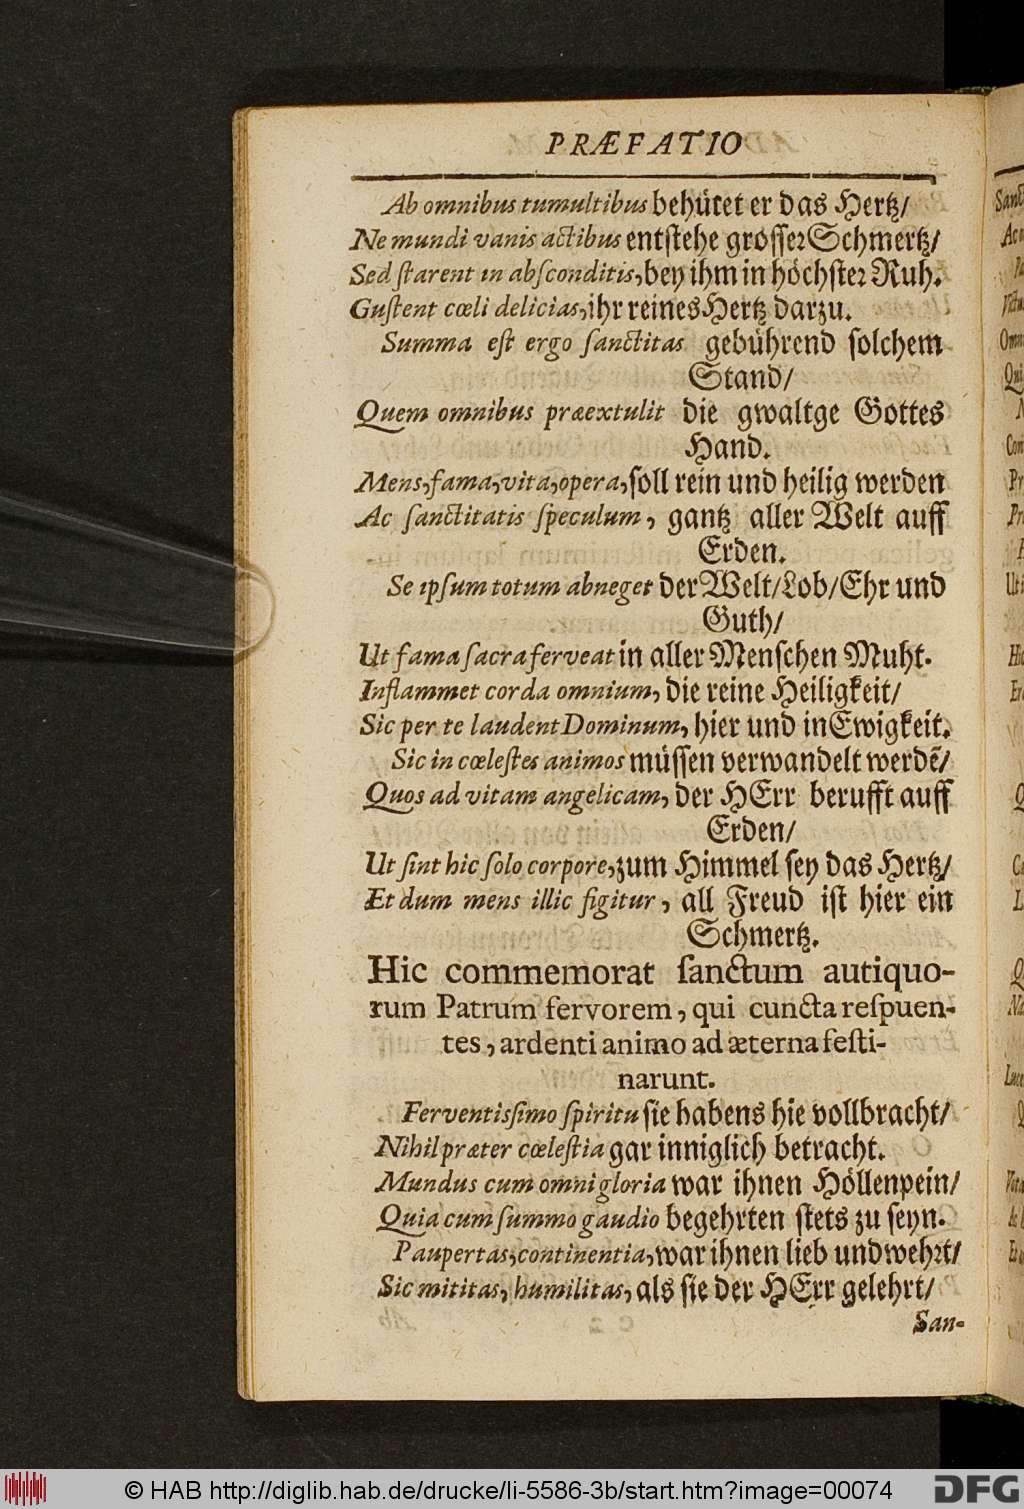 PRÆFATIO
Ab omnibus tumultibus behütet er das Hertz/
Ne mundi vanis actibus entstehe grosser Schmertz/
Sed starent in absconditis, bey ihm in höchster Ruh.
Gustent cœli delicias, ihr reines Hertz darzu.
Summa est ergo sanctitas gebührend solchem
Stand/
Quem omnibus præextulit die gwaltge Gottes
Hand.
Mens, fama, vita, opera, soll rein und heilig werden
Ac sanctitatis speculum, gantz aller Welt auff
Erden.
Se ipsum totum abneget der Welt/Lob/Ehr und
Guth/
Ut fama sacra ferveat in aller Menschen Muht.
Inflammet corda omnium, die reine Heiligkeit/
Sic per te laudent Dominum, hier und in Ewigkeit.
Sic in cœlestes animos müssen verwandelt werdẽ/
Quos ad vitam angelicam, der HErr berufft auff
Erden/
Ut sint hic solo corpore, zum Himmel sey das Hertz/
Et dum mens illic figitur, all Freud ist hier ein
Schmertz.
Hic commemorat sanctum autiquo-
rum Patrum fervorem, qui cuncta respuen-
tes, ardenti animo ad æterna festi-
narunt.
Ferventissimo spiritu sie habens hie vollbracht/
Nihil præter cœlestia gar inniglich betracht.
Mundus cum omni gloria war ihnen Höllenpein/
Quia cum summo gaudio begehrten stets zu seyn.
Paupertas, continentia, war ihnen lieb und wehrt/
Sic mititas, humilitas, als sie der HErr gelehrt/
San-
© HAB http://diglib.hab.de/drucke/li-5586-3b/start.htm?image=00074
DFG